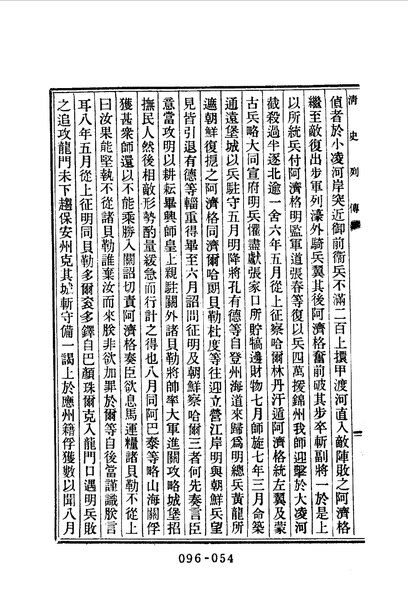 清史列傳
偵者於小凌河岸突近御前衛兵不滿二百上擐甲渡河直入敵陣敗之阿濟格
繼至敵復出步軍列濠外騎兵翼其後阿濟格奮前破其步卒斬副將一於是上
以所統兵付阿濟格明監軍道張春等復以兵四萬援錦州我師迎擊於大凌河
截殺過半逐北逾一舍六年五月從上征察哈爾林丹汗遁阿濟格統左翼及蒙
古兵略大同宣府明兵懼盡獻張家口所貯犒邊財物七月師旋七年三月命築
通遠堡城以兵駐守五月明降將孔有德等自登州海道來歸爲明總兵黃龍所
邀朝鮮復扼之阿濟格同濟爾哈朗貝勒杜度等往迎立營江岸明與朝鮮兵望
見皆引退有德等輜重得畢至六月詔問征明及朝鮮察哈爾三者何先奏言臣
意當攻明以耕耘畢興師皇上親駐關外諸貝勒將帥率大軍進關攻略城堡招
撫民人然後相敵形勢酌量緩急而行計之得也八月同阿巴泰等略山海關俘
獲甚衆師還以不能乘勝入關詔切責阿濟格奏臣欲息馬運糧諸貝勒不從上
曰汝果能堅執不從諸貝勒誰棄汝而來朕非欲加罪於爾等自後當謹識朕言
耳八年五月從上征明同貝勒多爾袞多鐸自巴顏珠爾克入龍門口遇明兵敗
之追攻龍門未下趨保安州克其城斬守備一謁上於應州籍俘獲數以聞八月
096-054